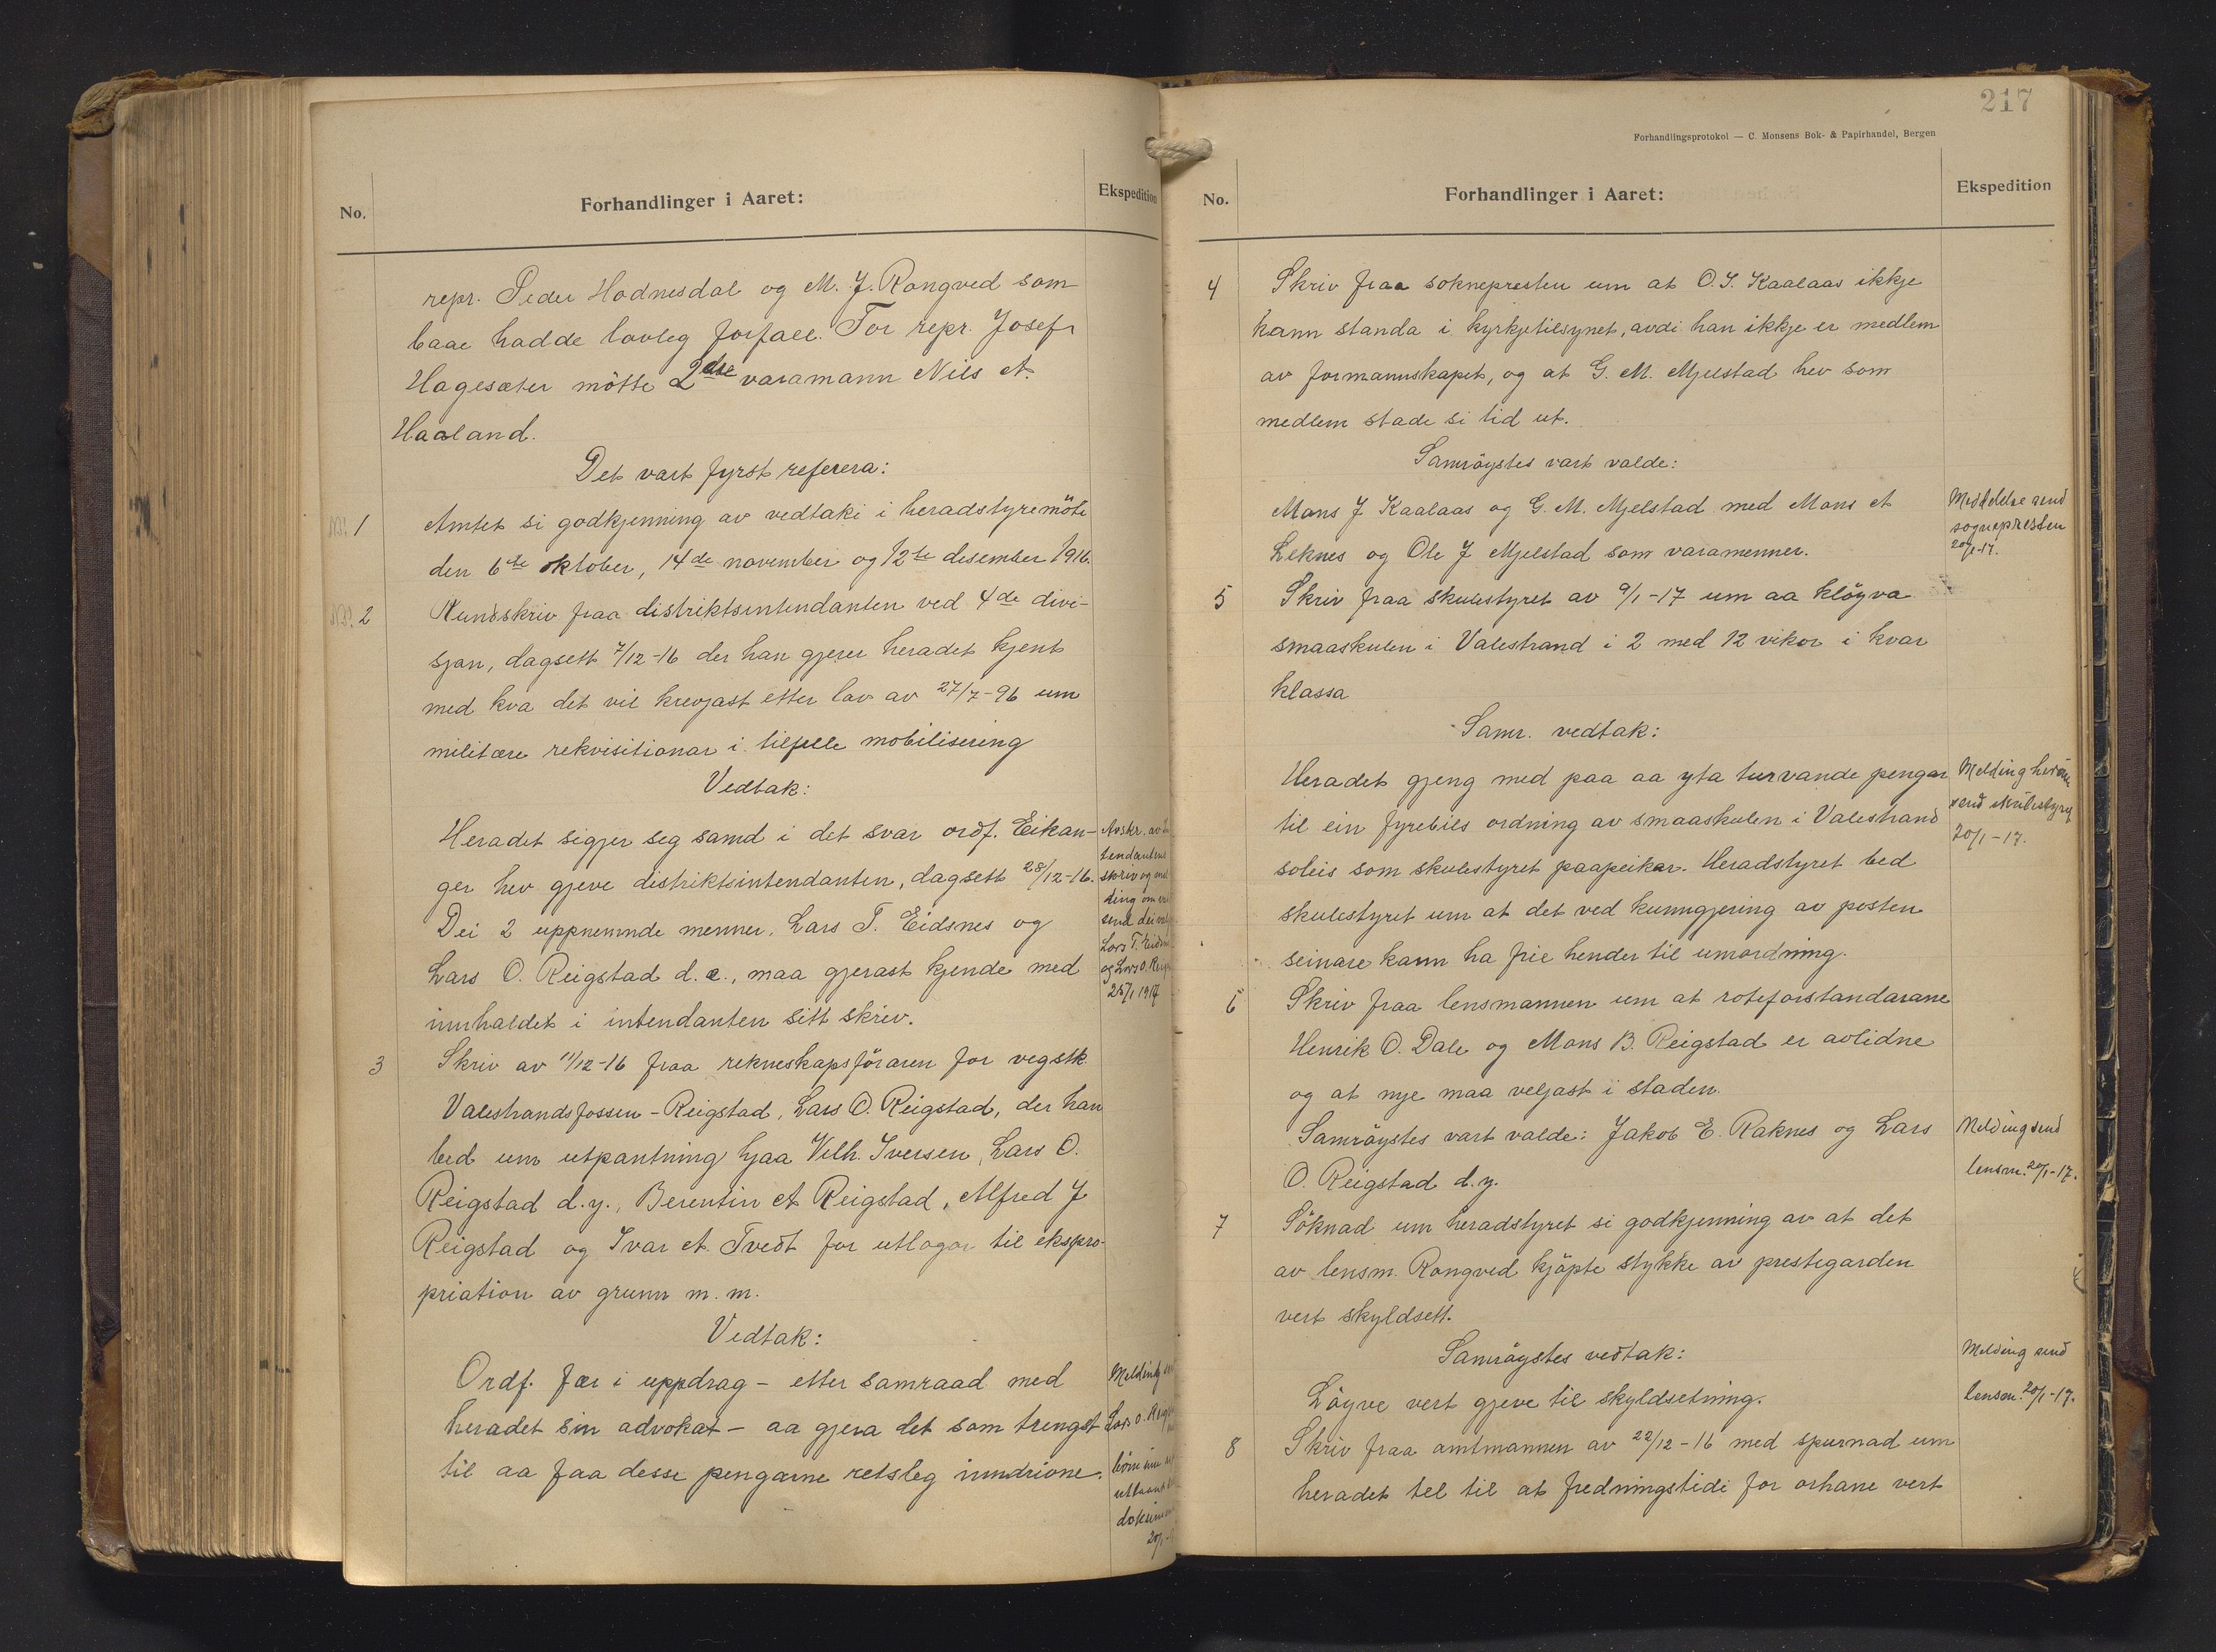 No.
Forhandlinger i Aaret:
Ekspedition
repr. Peder Hodnesdal og M. J. Rongved som
baae hadde lovleg forfall. For repr. Josef
Hagesæter mötte 2dre varamann Nils A.
Haaland.
Det vart fyrst referera:
No. 1 Amtet si godkjenning av vedtaki i heradstyremöte
den 6te oktober, 14de november og 12te desember 1916.
No. 2 Rundskriv fraa distriktsintendanten ved 4de divi-
sjon, dagsett 7/12-16 der han gjerer heradet kjent
med kva det vil krevjast etter lov av 27/7-96 um
militære rekvisitionar i tilfelle mobilisering
Vedtak:
Heradet sigjer seg samd i det svar ordf. Eikan-
ger hev gjeve distriktsintendanten, dagsett 28/12-16.
Dei 2 uppnemnde menner, Lars T. Eidsnes og
Lars O. Reigstad d.e., maa gjerast kjende med
innhaldet i intendanten sitt skriv.
Avskr. av
tendantens
skriv og mel
ding om
send dei
Lars T. Eidsn
og Lars O. Reig
25/1 1917
3 Skriv av 11/12-16 fraa rekneskapsföraren for vegstk.
Valestrandsfossen - Reigstad, Lars O. Reigstad, der han
bed um utpantning hjaa Vilh. Iversen, Lars O.
Reigstad d.y., Berentin A Reigstad, Alfred J
Reigstad og Ivar A. Tvedt for utlogor til ekspro-
priation av grunn m. m.
Vedtak:
Ordf. fær i uppdrag - etter samraad med
heradet sin advokat - aa gjera det som trengst
til aa faa desse pengarne retsleg inndrivne.
Melding
Lars O. Reig
utlaant
dokum
20/1-
217
Forhandlingsprotokol — C. Monsens Bok- & Papirhandel, Bergen
No.
Forhandlinger i Aaret:
Ekspedition
4 Skriv fraa soknepresten um at O. J. Kaalaas ikkje
kann standa i kyrkjetilsynet, avdi han ikkje er medlem
av formannskapet, og at G. M. Mjelstad hev som
medlem stade si tid ut.
Samröystes vart valde:
Mons J Kaalaas og G. M. Mjelstad med Mons A
Leknes og Ole J Mjelstad som varamenner.
Meddelelse send
sognepresten
20/1-17.
5 Skriv fraa skulestyret av 9/1-17 um aa klöyva
smaaskulen i Valestrand i 2 med 12 vikor i kvar
klassa
Samr. vedtak:
Heradet gjeng med paa aa yta turvande pengar
til ein fyrebils ordning av smaaskulen i Valestrand
soleis som skulestyret paapeikar. Heradstyret bed
skulestyret um at det ved kunngjering av posten
seinare kann ha frie hender til umordning.
Melding herom
send skulestyret
20/1-17.
6 Skriv fraa lensmannen um at roteforstandarane
Henrik O. Dale og Mons B. Reigstad er avlidne
og at nye maa veljast i staden.
Samröystes vart valde: Jakob E. Raknes og Lars
O. Reigstad d.y.
Melding send
lensm. 20/1-17.
7 Söknad um heradstyret si godkjenning av at det
av lensm. Rongved kjöpte stykke av prestegarden
vert skyldsett.
Samröystes vedtak:
Löyve vert gjeve til skyldsetning.
Melding send
lensm. 20/1-17.
8 Skriv fraa amtmannen av 22/12-16 med spurnad um
heradet tel til at fredningstidi for orhane vert